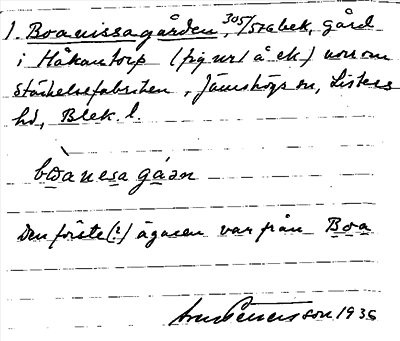 1. Boanissagården, 305/576 bek, gård
i Håkantorp (fig nr 1 å ek.) norr om
stärkelsefabriken, Jämshögs sn, Listers
hd, Blek. l.
bòanesa gáɷn
Den förste(?) ägaren var från Boa
Pettersson 1935